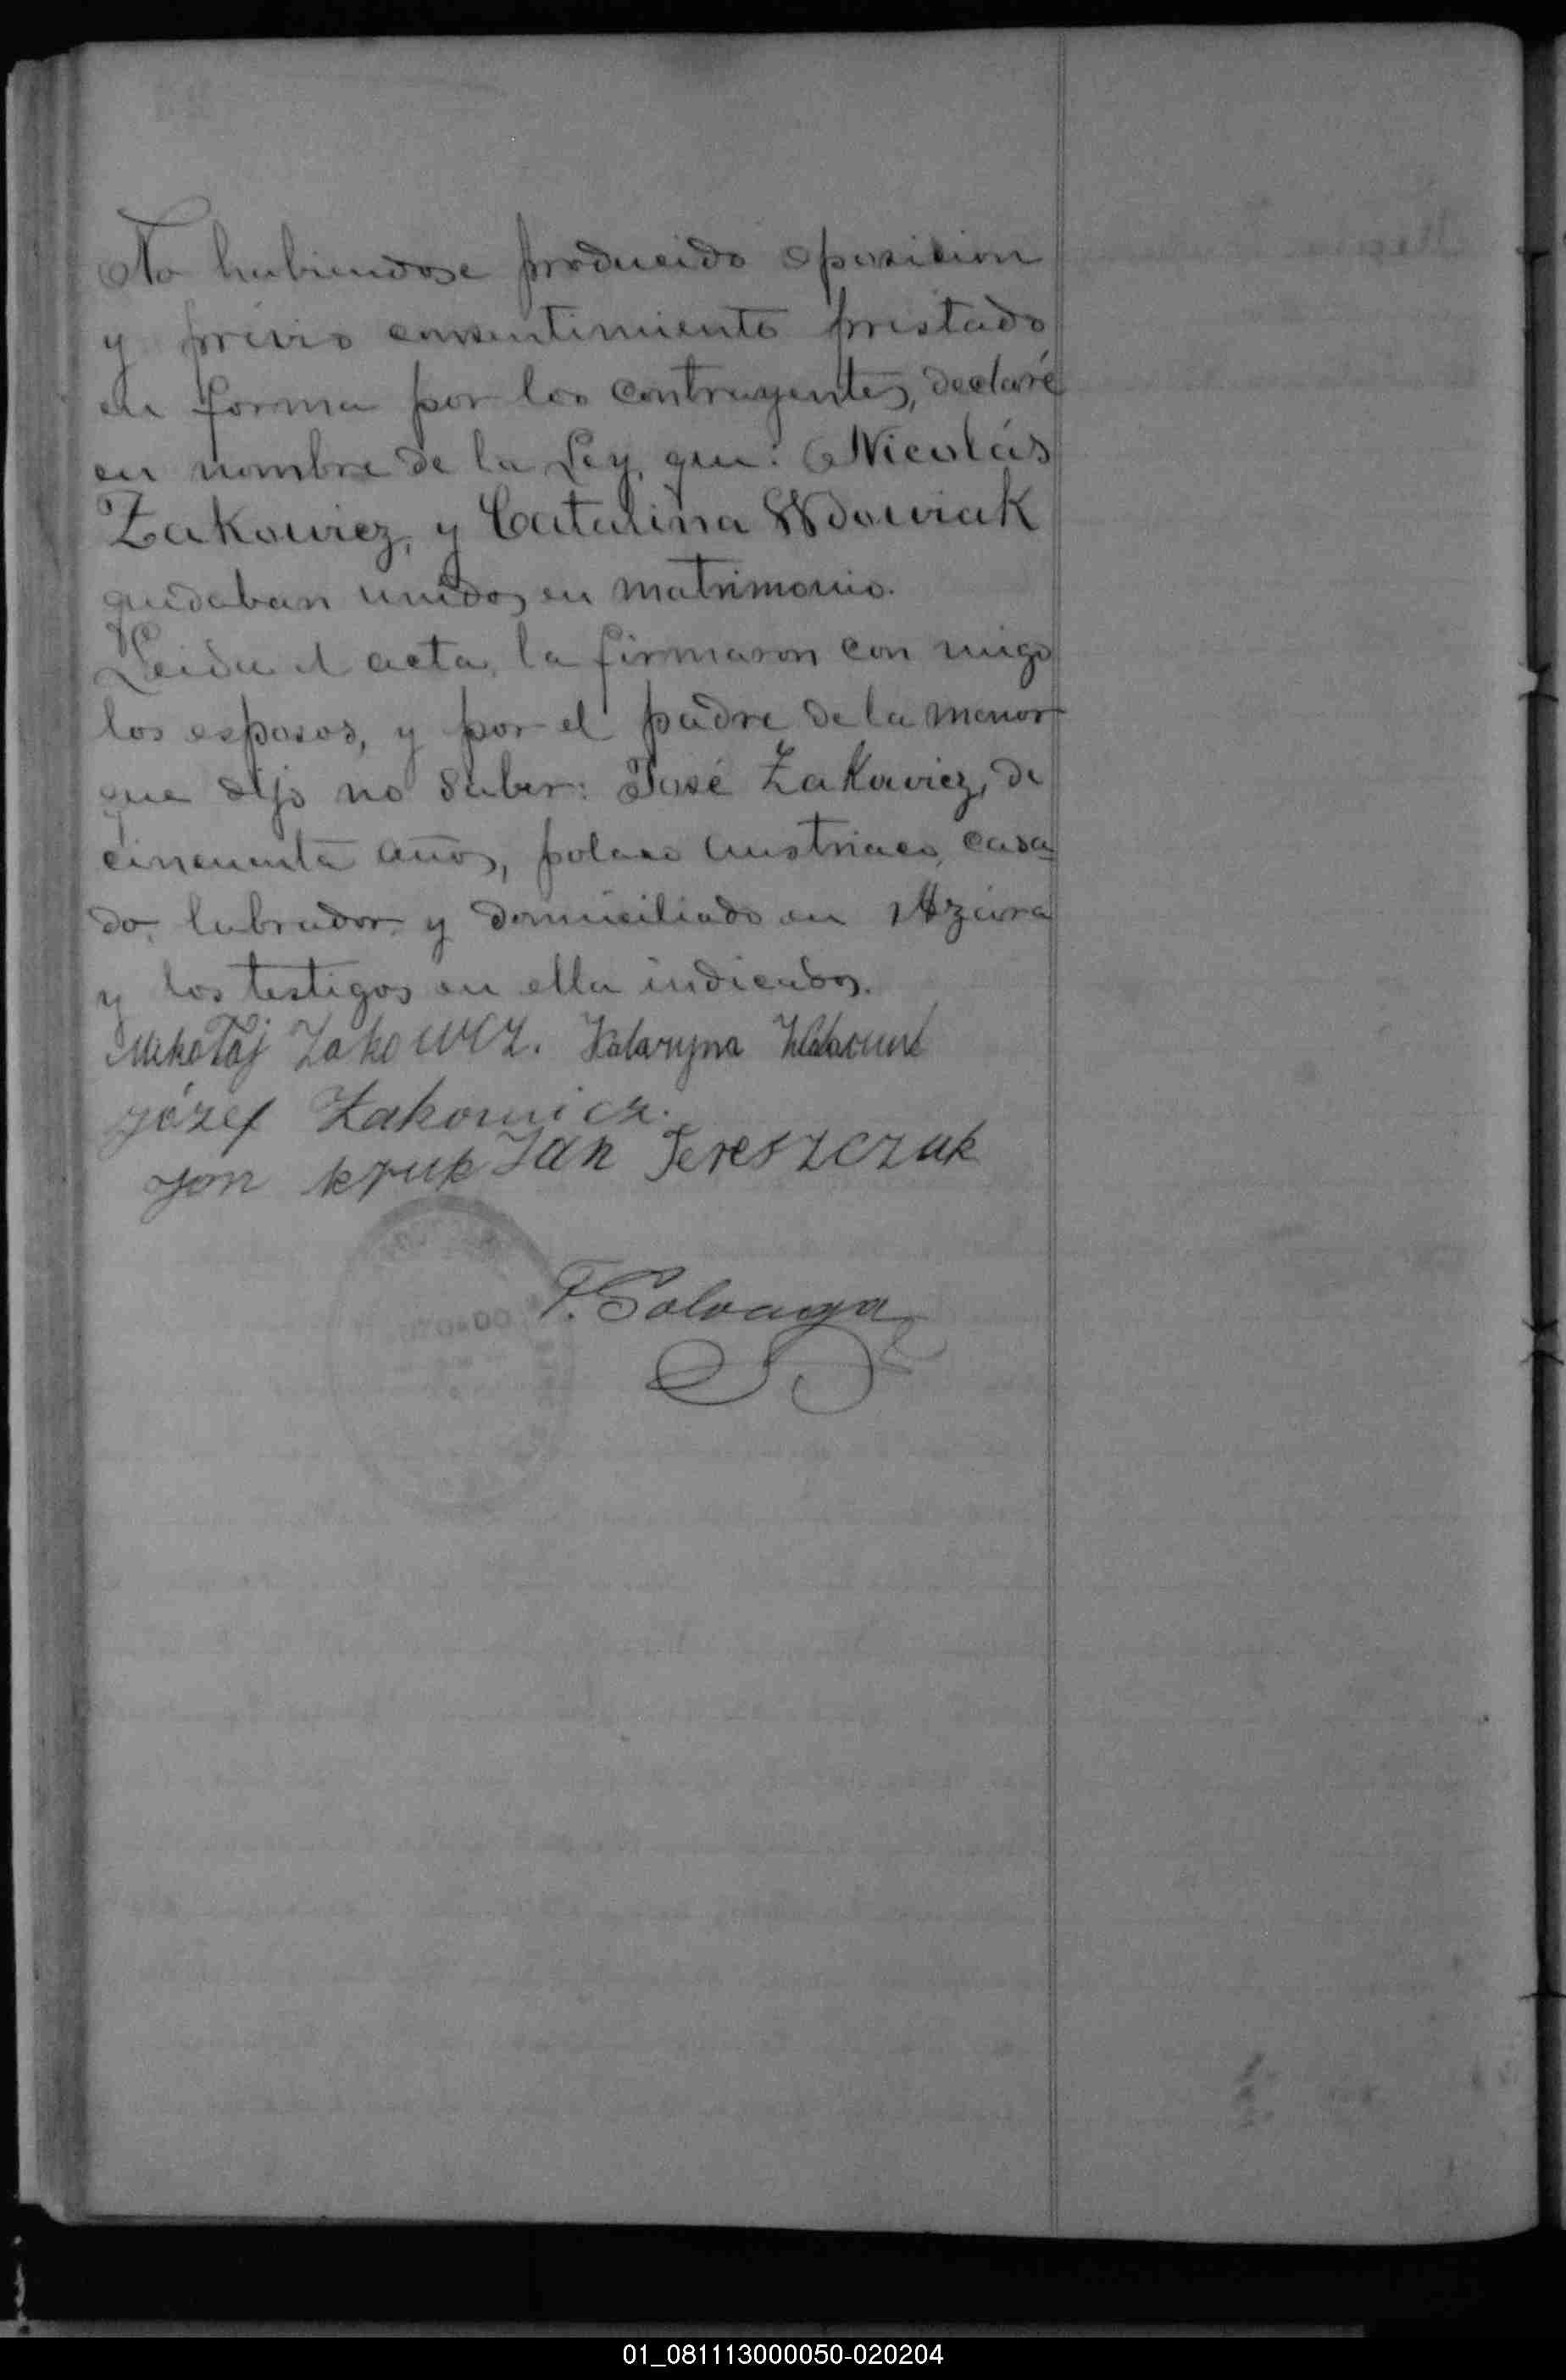 No habiendose producido oposicion
y previo consentimiento prestado
en forma por los contrayentes, declaré
en nombre de la Ley, que: Nicolás
Zakowicz, y Catalina Wdowiak
quedaban unidos en matrimonio.
Leida el acta, la firmaron con migo
los esposos, y por el padre de la menor
que dijo no saber: José Zakowicz, de
cincuenta años, polaco austriaco, casa=
do, labrador, y domiciliado en Azára
y los testigos en ella indicados.
Mikołaj Zakowicz. Kataryna
Józef Zakowicz.
Jon kruk Jan Tereszczuk
F. Galvaga
01_081113000050-020204